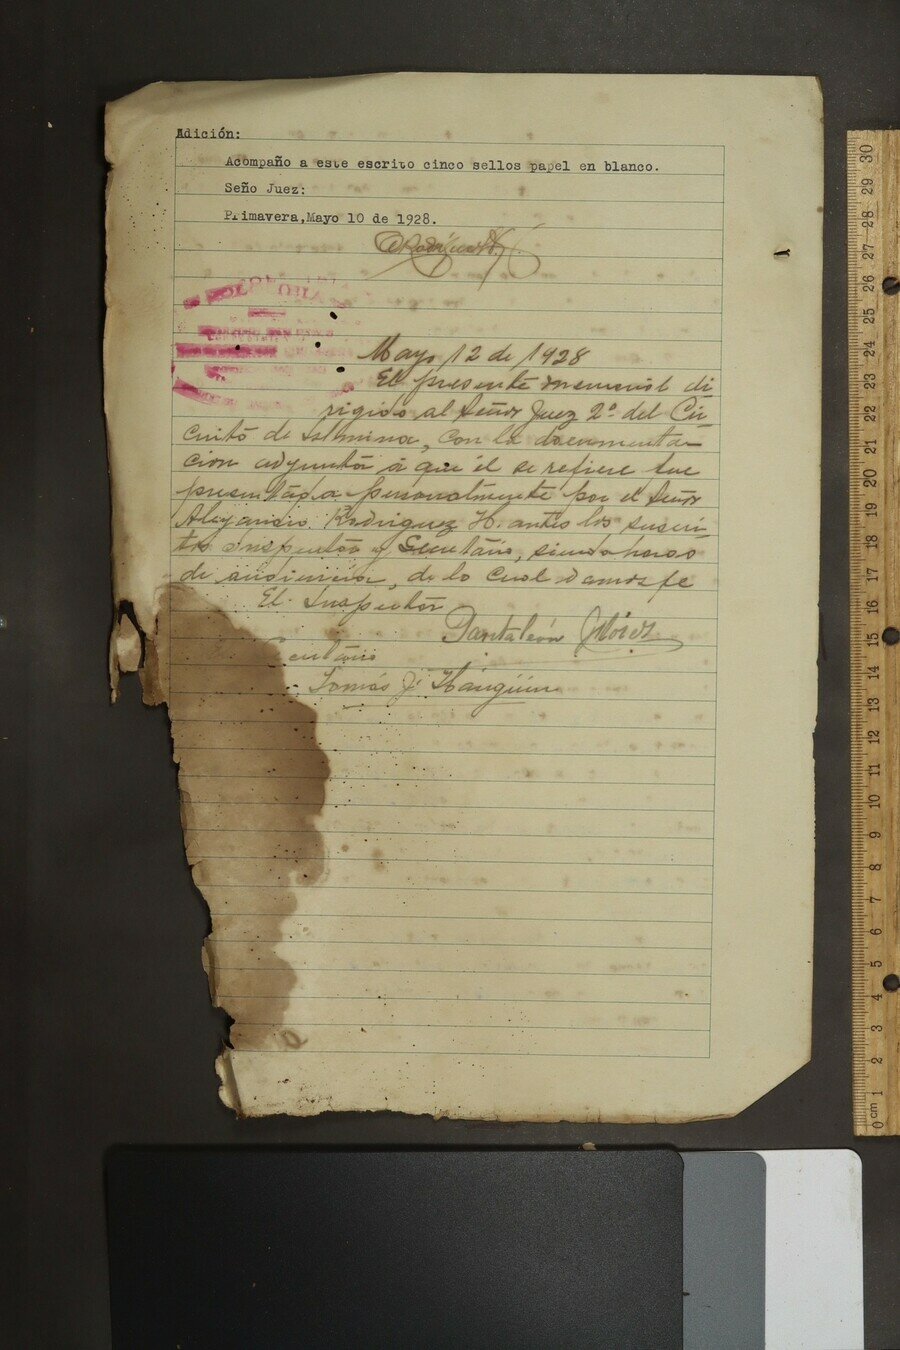 Adición:
Acompaño a este escrito cinco sellos papel en blanco.
Seño Juez:
Primavera,Mayo 10 de 1928.
COLOMBIA
Mayo 12 de 1928
El presente memorial di
rigido al Señor Juez 2º del Cir
cuito de Salamina, con la documenta-
ción adjunta á que él se refiere fue
presentada personalmente por el Señor
Alejandro Rodriguez H. antes los suscri-
tos Inspector y Secretario, siendo horas
de audiencia, de lo cual damos fe
El Inspector
Pantaleón
cretario
Tomás J.
0 cm 1 2 3 4 5 6 7 8 9 10 11 12 13 14 15 16 17 18 19 20 21 22 23 24 25 26 27 28 29 30